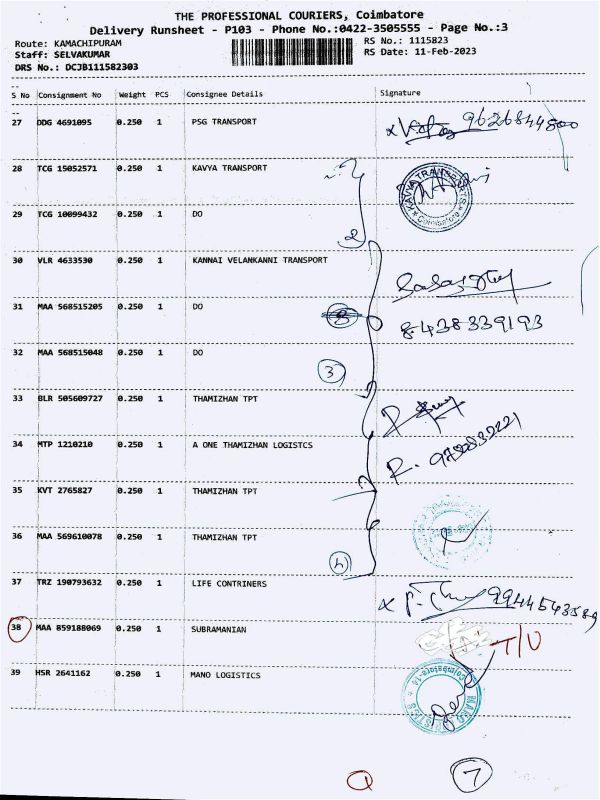 THE PROFESSIONAL COURIERS, Coimbatore
Delivery Runsheet - P103 - Phone No.:0422-3505555 - Page No.:3
Route: KAMACHIPURAM RS No.: 1115823
Staff: SELVAKUMAR RS Date: 11-Feb-2023
DRS No.: DCJB111582303
S No Consignment No Weight PCS Consignee Details Signature
27 DDG 4691095 0.250 1 PSG TRANSPORT 9626844800
28 TCG 15052571 0.250 1 KAVYA TRANSPORT KAVYA TRANSPORTS Coimbatore
29 TCG 10099432 0.250 1 DO 2
30 VLR 4633530 0.250 1 KANNAI VELANKANNI TRANSPORT
31 MAA 568515205 0.250 1 DO 8438339193
32 MAA 568515048 0.250 1 DO 3
33 BLR 505609727 0.250 1 THAMIZHAN TPT
34 MTP 1210210 0.250 1 A ONE THAMIZHAN LOGISTCS
35 KVT 2765827 0.250 1 THAMIZHAN TPT
36 MAA 569610078 0.250 1 THAMIZHAN TPT 4
37 TRZ 190793632 0.250 1 LIFE CONTRINERS 9944543589
38 MAA 859188069 0.250 1 SUBRAMANIAN T/U
39 HSR 2641162 0.250 1 MANO LOGISTICS
1 7